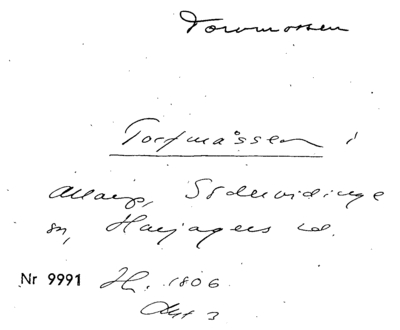 Torvmossen
Torfmåssen i
Allarp, Södervidinge
sn, Harjagers hd.
Nr 9991 H. 1806
Akt 3